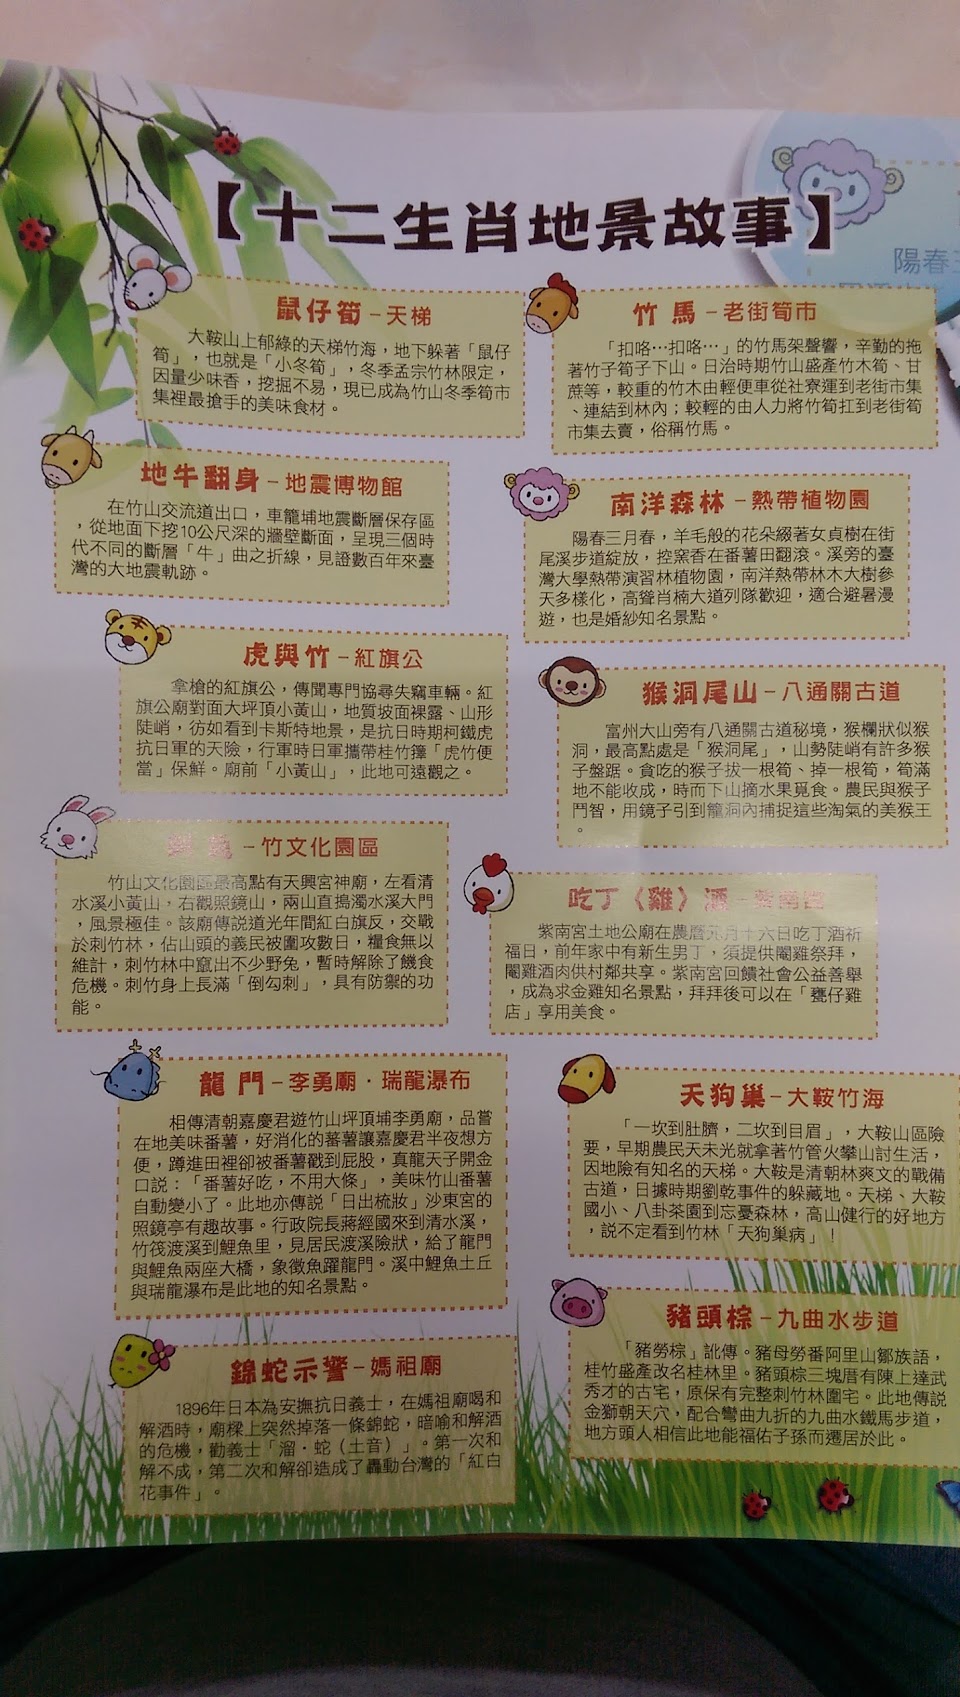 【十二生肖地景故事】
陽春三
鼠仔筍－天梯
大鞍山上郁綠的天梯竹海，地下躲著「鼠仔
筍」，也就是「小冬筍」，冬季孟宗竹林限定，
因量少味香，挖掘不易，現已成為竹山冬季筍市
集裡最搶手的美味食材。
地牛翻身－地震博物館
在竹山交流道出口，車籠埔地震斷層保存區
，從地面下挖10公尺深的牆壁斷面，呈現三個時
代不同的斷層「牛」曲之折線，見證數百年來臺
灣的大地震軌跡。
虎與竹－紅旗公
拿槍的紅旗公，傳聞專門協尋失竊車輛。紅
旗公廟對面大坪頂小黃山，地質坡面裸露、山形
陡峭，彷如看到卡斯特地景，是抗日時期柯鐵虎
抗日軍的天險，行軍時日軍攜帶桂竹籜「虎竹便
當」保鮮。廟前「小黃山」，此地可遠觀之。
－竹文化園區
竹山文化園區最高點有天興宮神廟，左看清
水溪小黃山，右觀照鏡山，兩山直搗濁水溪大門
，風景極佳。該廟傳說道光年間紅白旗反，交戰
於刺竹林，佔山頭的義民被圍攻數日，糧食無以
維計，刺竹林中竄出不少野兔，暫時解除了饑食
危機。刺竹身上長滿「倒勾刺」，具有防禦的功
能。
龍門－李勇廟．瑞龍瀑布
相傳清朝嘉慶君遊竹山坪頂埔李勇廟，品嘗
在地美味番薯，好消化的蕃薯讓嘉慶君半夜想方
便，蹲進田裡卻被番薯戳到屁股，真龍天子開金
口說：「番薯好吃，不用大條」，美味竹山番薯
自動變小了。此地亦傳說「日出梳妝」沙東宮的
照鏡亭有趣故事。行政院長蔣經國來到清水溪，
竹筏渡溪到鯉魚里，見居民渡溪險狀，給了龍門
與鯉魚兩座大橋，象徵魚躍龍門。溪中鯉魚土丘
與瑞龍瀑布是此地的知名景點。
錦蛇示警－媽祖廟
1896年日本為安撫抗日義士，在媽祖廟喝和
解酒時，廟樑上突然掉落一條錦蛇，暗喻和解酒
的危機，勸義士「溜．蛇（土音）」。第一次和
解不成，第二次和解卻造成了轟動台灣的「紅白
花事件」。
竹馬－老街筍市
「扣咯…扣咯…」的竹馬架聲響，辛勤的拖
著竹子筍子下山。日治時期竹山盛產竹木筍、甘
蔗等，較重的竹木由輕便車從社寮運到老街市集
、連結到林內；較輕的由人力將竹筍扛到老街筍
市集去賣，俗稱竹馬。
南洋森林－熱帶植物園
陽春三月春，羊毛般的花朵綴著女貞樹在街
尾溪步道綻放，控窯香在番薯田翻滾。溪旁的臺
灣大學熱帶演習林植物園，南洋熱帶林木大樹參
天多樣化，高聳肖楠大道列隊歡迎，適合避暑漫
遊，也是婚紗知名景點。
猴洞尾山－八通關古道
富州大山旁有八通關古道秘境，猴欄狀似猴
洞，最高點處是「猴洞尾」，山勢陡峭有許多猴
子盤踞。貪吃的猴子拔一根筍、掉一根筍，筍滿
地不能收成，時而下山摘水果覓食。農民與猴子
鬥智，用鏡子引到籠洞內捕捉這些淘氣的美猴王
。
吃丁〈雞〉酒－紫南宮
紫南宮土地公廟在農曆元月十六日吃丁酒祈
福日，前年家中有新生男丁，須提供閹雞祭拜，
閹雞酒肉供村鄰共享。紫南宮回饋社會公益善舉
，成為求金雞知名景點，拜拜後可以在「甕仔雞
店」享用美食。
天狗巢－大鞍竹海
「一坎到肚臍，二坎到目眉」，大鞍山區險
要，早期農民天未光就拿著竹管火攀山討生活，
因地險有知名的天梯。大鞍是清朝林爽文的戰備
古道，日據時期劉乾事件的躲藏地。天梯、大鞍
國小、八卦茶園到忘憂森林，高山健行的好地方
，說不定看到竹林「天狗巢病」！
豬頭棕－九曲水步道
「豬勞棕」訛傳。豬母勞番阿里山鄒族語，
桂竹盛產改名桂林里。豬頭棕三塊厝有陳上達武
秀才的古宅，原保有完整刺竹林圍宅。此地傳說
金獅朝天穴，配合彎曲九折的九曲水鐵馬步道，
地方頭人相信此地能福佑子孫而遷居於此。